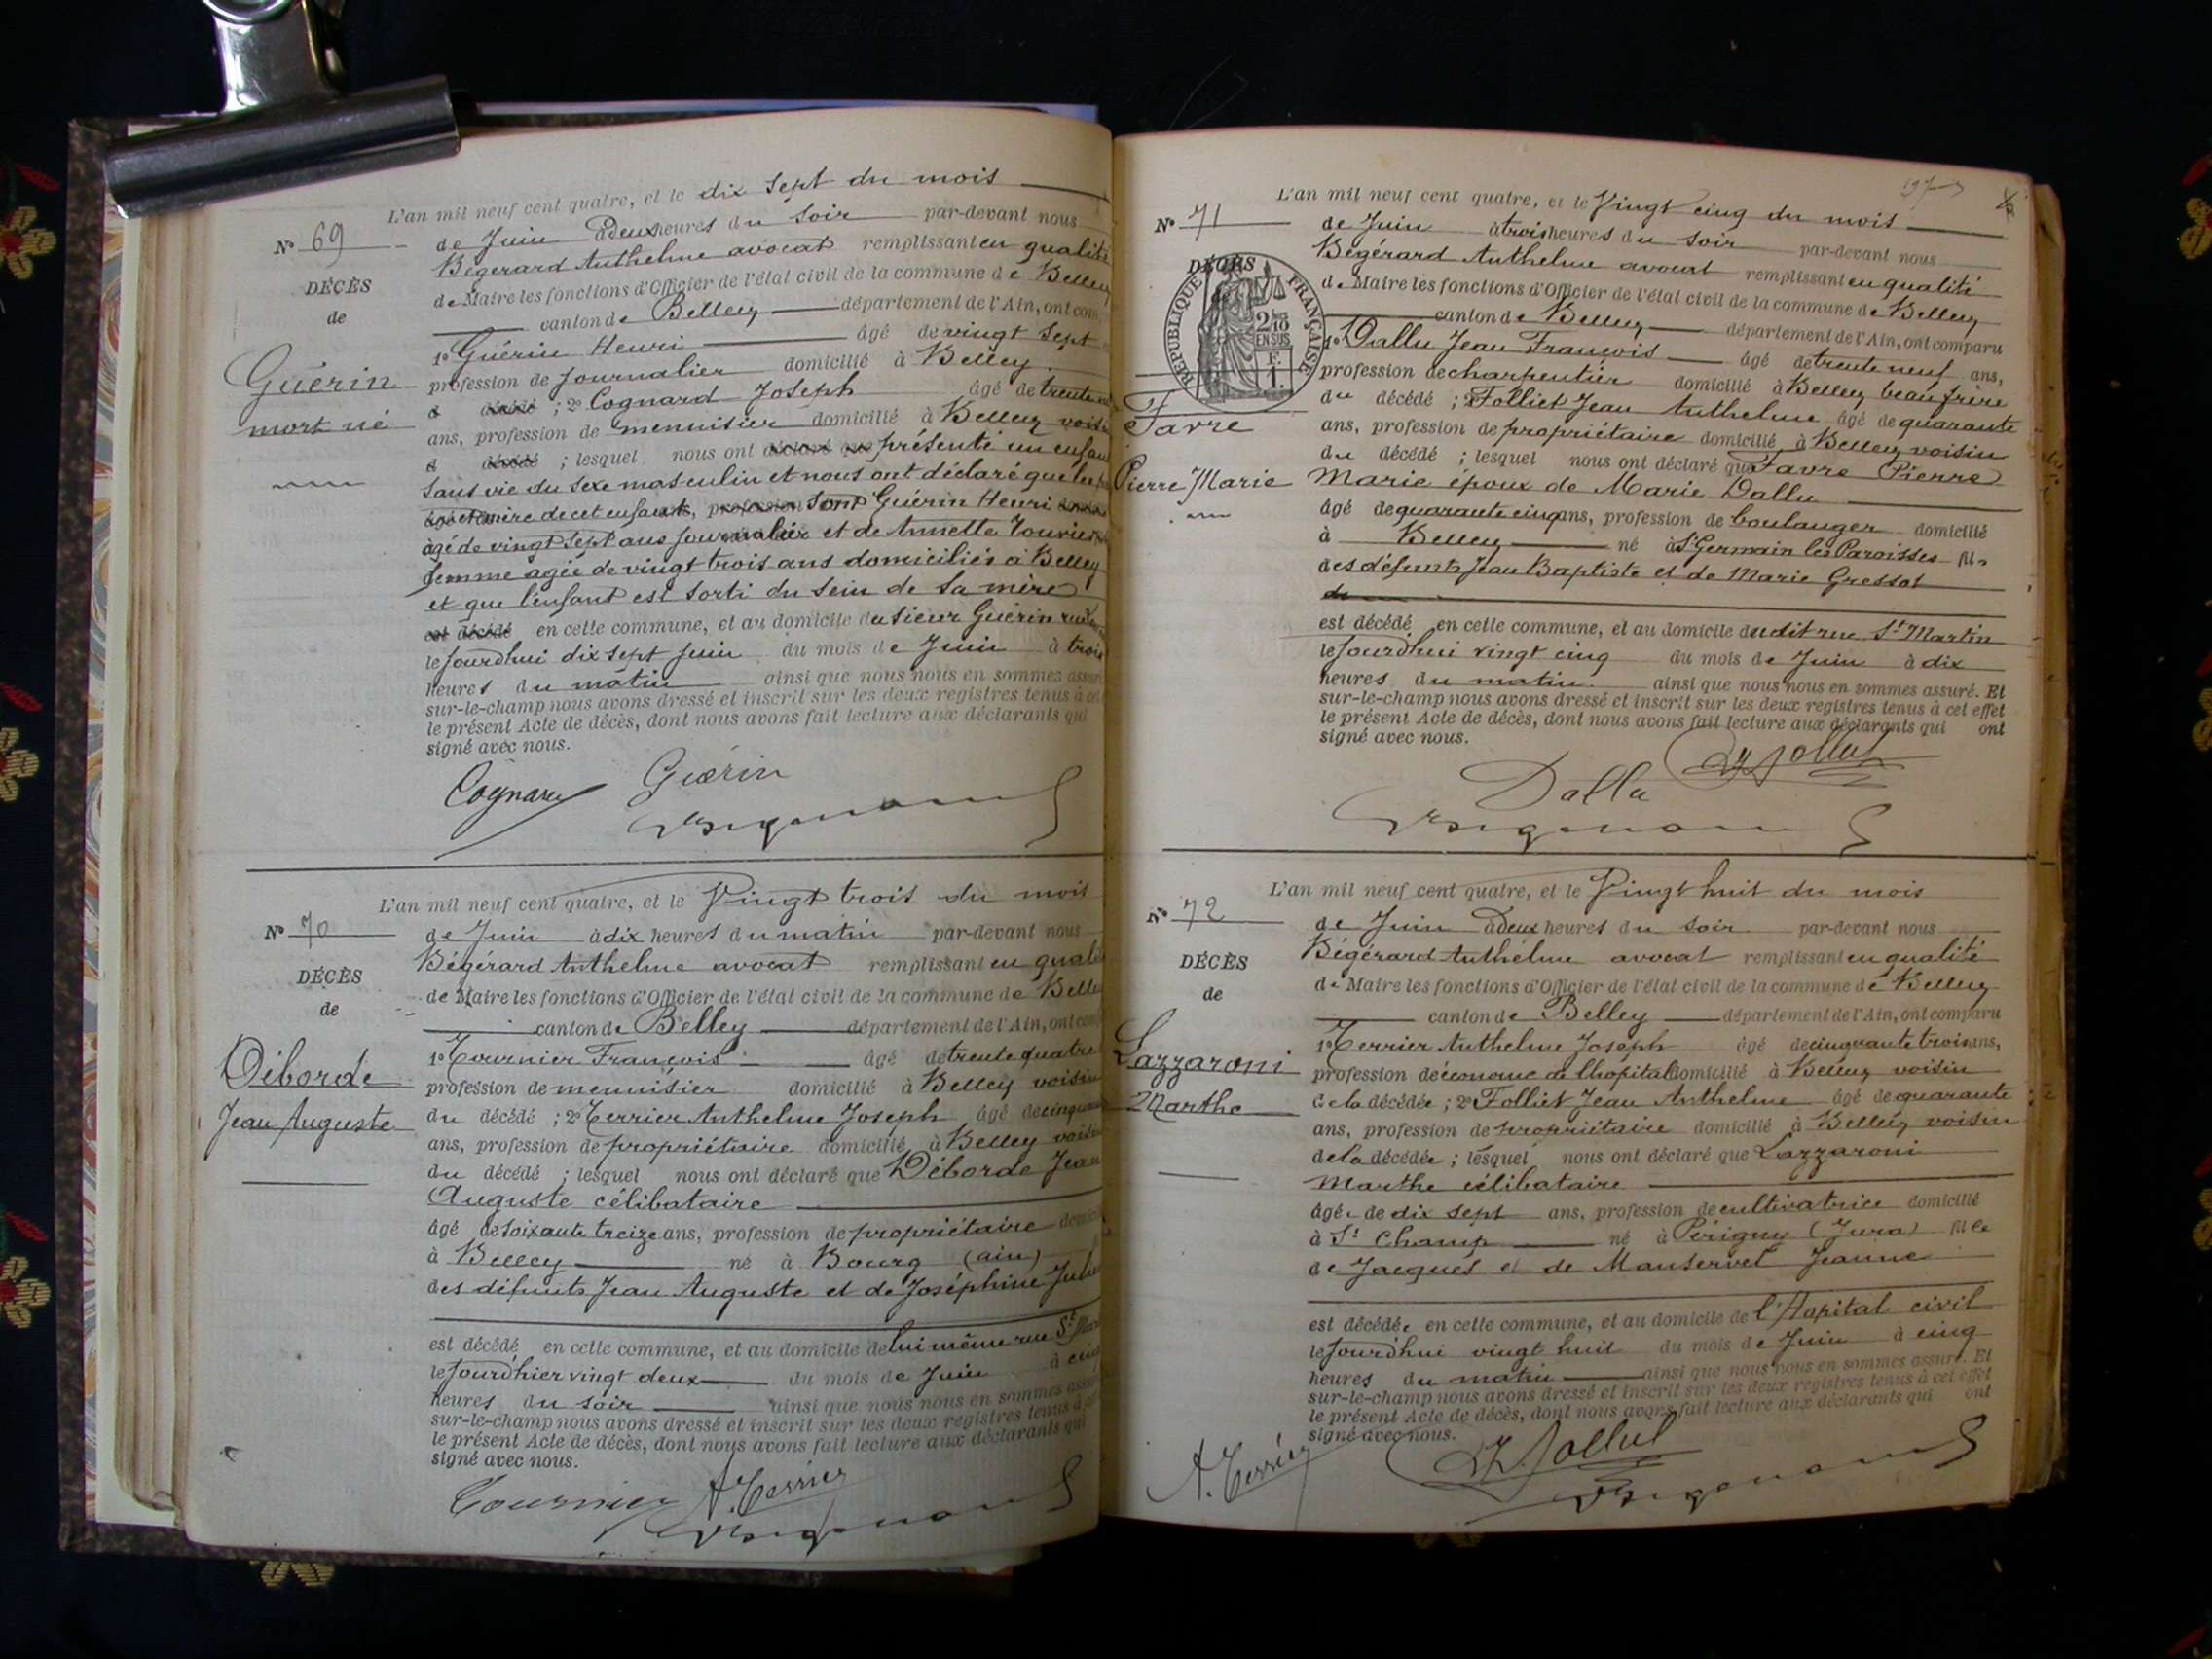 L'an mil neuf cent quatre, et le dix sept du mois
N° 69
de Juin à deux heures du soir par-devant nous
Bégérard Anthelme avocat remplissant en qualité
DÉCÈS
de Maire les fonctions d'Officier de l'état civil de la commune de Belley
de
canton de Belley département de l'Ain, ont com
1° Guérin Henri âgé de vingt sept
Guérin
profession de journalier domicilié à Belley
d décédé ; 2° Cognard Joseph âgé de trente
mort né
ans, profession de menuisier domicilié à Belley voisi
d décédé ; lesquel nous ont déclaré que présenté un enfan
sans vie du sexe masculin et nous ont déclaré que les
âgé et mère de cet enfant, profession sont Guérin Henri
âgé de vingt sept ans journalier et de Annette
femme agée de vingt trois ans domiciliés à Belley
et que l'enfant est sorti du sein de sa mère
est décédé en cette commune, et au domicile du sieur Guérin rue
le jourd'hui dix sept juin du mois de Juin à trois
heures du matin ainsi que nous nous en sommes assuré
sur-le-champ nous avons dressé et inscrit sur les deux registres tenus à cet
le présent Acte de décès, dont nous avons fait lecture aux déclarants qui
signé avec nous.
Cognard Guérin
L'an mil neuf cent quatre, et le Vingt trois du mois
N° 70
de Juin à dix heures du matin par-devant nous
Bégérard Anthelme avocat remplissant en qualité
DÉCÈS
de Maire les fonctions d'Officier de l'état civil de la commune de Belle
de
canton de Belley département de l'Ain, ont comp
1° Tournier François âgé de trente quatre
Déborde
profession de menuisier domicilié à Belley voisin
Jean Auguste
du décédé ; 2° Terrier Anthelme Joseph âgé de cinquan
ans, profession de propriétaire domicilié à Belley voisin
du décédé ; lesquel nous ont déclaré que Déborde Jean
Auguste célibataire
âgé de soixante treize ans, profession de propriétaire domicil
à Belley né à Bourg (ain)
des défunts Jean Auguste et de Joséphine
est décédé en cette commune, et au domicile de lui même rue St Mar
le jourd'hier vingt deux du mois de Juin à cinq
heures du soir ainsi que nous nous en sommes assu
sur-le-champ nous avons dressé et inscrit sur les deux registres tenus à cet
le présent Acte de décès, dont nous avons fait lecture aux déclarants qui
signé avec nous.
Tournier A. Terrier
197
L'an mil neuf cent quatre, et le Vingt cinq du mois
N° 71
de Juin à trois heures du soir par-devant nous
Bégérard Anthelme avocat remplissant en qualité
DÉCÈS
RÉPUBLIQUE FRANÇAISE
2/10 EN SUS
F. 1.
de Maire les fonctions d'Officier de l'état civil de la commune de Belley
canton de Belley département de l'Ain, ont comparu
1° Dallu Jean François âgé de trente neuf ans,
profession de charpentier domicilié à Belley beau frère
Favre
du décédé ; 2° Folliet Jean Anthelme âgé de quarante
ans, profession de propriétaire domicilié à Belley voisin
du décédé ; lesquel nous ont déclaré que Favre Pierre
Pierre Marie
Marie époux de Marie Dallu
âgé de quarante cinq ans, profession de boulanger domicilié
à Belley né à St Germain les Paroisses fils
des défunts Jean Baptiste et de Marie Gressot
de
est décédé en cette commune, et au domicile dudit rue St Martin
le jourd'hui vingt cinq du mois de Juin à dix
heures du matin ainsi que nous nous en sommes assuré. Et
sur-le-champ nous avons dressé et inscrit sur les deux registres tenus à cet effet
le présent Acte de décès, dont nous avons fait lecture aux déclarants qui ont
signé avec nous.
Dallu
L'an mil neuf cent quatre, et le Vingt huit du mois
N° 72
de Juin à deux heures du soir par-devant nous
Bégérard Anthelme avocat remplissant en qualité
DÉCÈS
de Maire les fonctions d'Officier de l'état civil de la commune de Belley
de
canton de Belley département de l'Ain, ont comparu
1° Terrier Anthelme Joseph âgé de cinquante trois ans,
Lazzaroni
profession de économe de l'hopital domicilié à Belley voisin
Marthe
de la décédée ; 2° Folliet Jean Anthelme âgé de quarante
ans, profession de propriétaire domicilié à Belley voisin
de la décédée ; lesquel nous ont déclaré que Lazzaroni
Marthe célibataire
âgée de dix sept ans, profession de cultivatrice domicilié
à St Champ né à Périgny (Jura) fille
de Jacques et de Manservet Jeanne
est décédée en cette commune, et au domicile de l'Hopital civil
le jourd'hui vingt huit du mois de Juin à cinq
heures du matin ainsi que nous nous en sommes assuré. Et
sur-le-champ nous avons dressé et inscrit sur les deux registres tenus à cet effet
le présent Acte de décès, dont nous avons fait lecture aux déclarants qui ont
signé avec nous.
A. Terrier